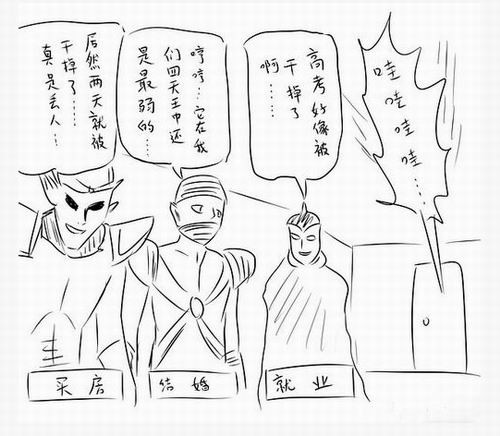 哇哇哇哇……
高考好像被
干掉了
啊……
哼哼…它在我
们四天王中还
是最弱的……
居然两天就被
干掉了……
真是丢人…
买房
结婚
就业